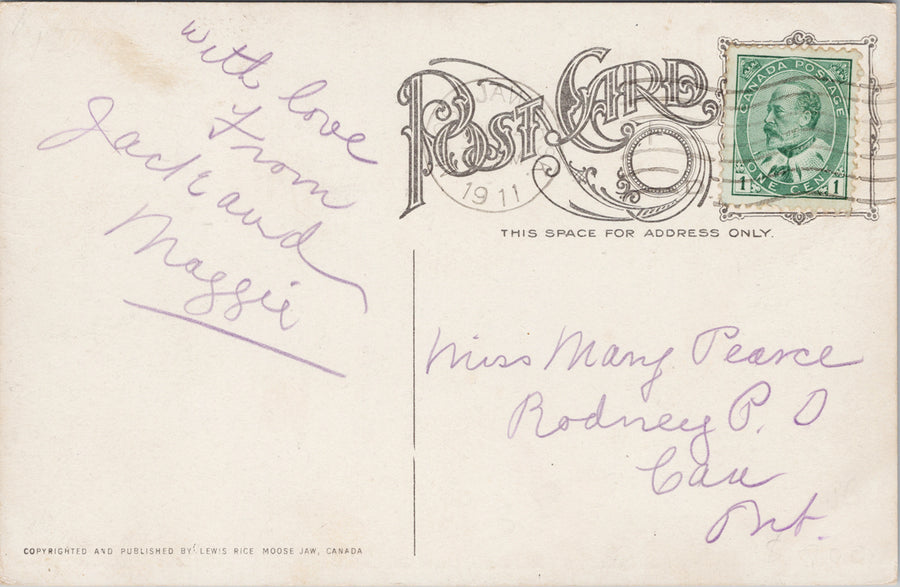 With love
From
Jack and
Maggie
POST CARD
JAW
1911
CANADA POSTAGE
1 ONE CENT 1
THIS SPACE FOR ADDRESS ONLY.
Miss Mary Pearce
Rodney P. O
Can
Ont.
COPYRIGHTED AND PUBLISHED BY LEWIS RICE MOOSE JAW, CANADA